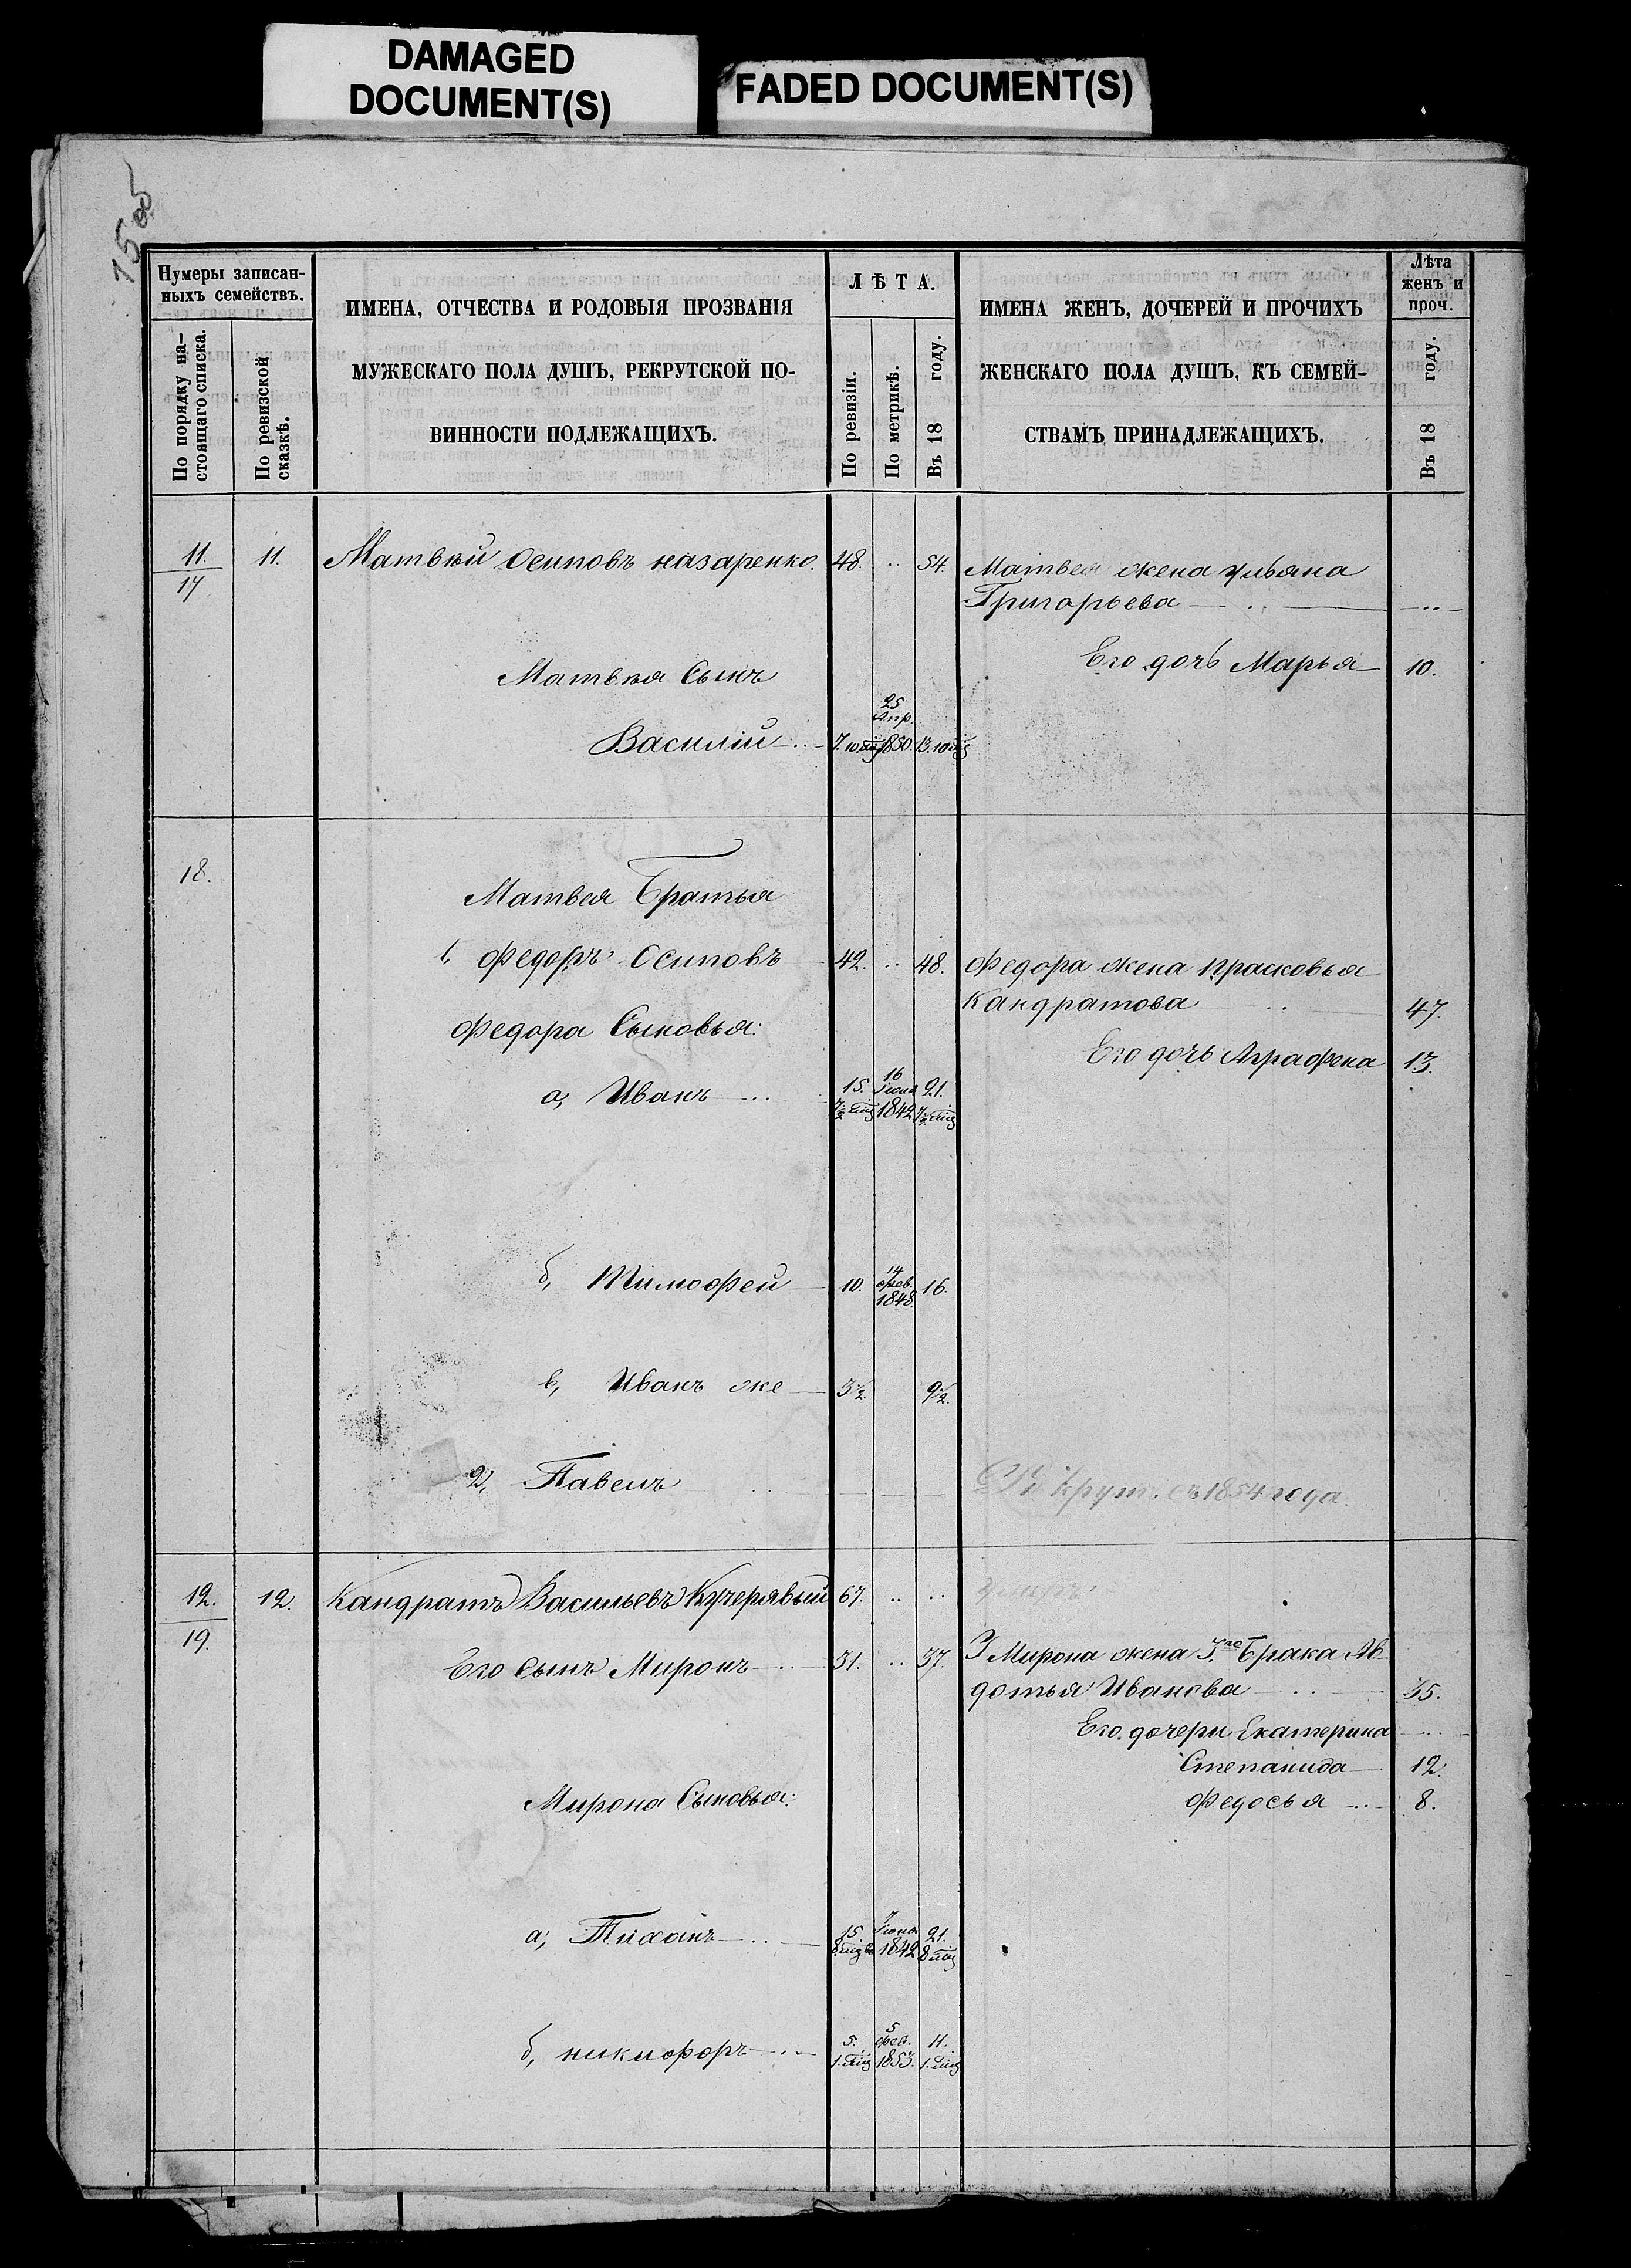 DAMAGED
DOCUMENT(S)
FADED DOCUMENT(S)
Нумеры записан-
ныхъ семействъ.
По порядку на-
стоящаго списка.
По ревизской
сказкѣ.
ИМЕНА, ОТЧЕСТВА И РОДОВЫЯ ПРОЗВАНІЯ
МУЖЕСКАГО ПОЛА ДУШЪ, РЕКРУТСКОЙ ПО-
ВИННОСТИ ПОДЛЕЖАЩИХЪ.
ЛѢТА.
По ревизіи.
По метрикѣ.
Въ 18 году.
ИМЕНА ЖЕНЪ, ДОЧЕРЕЙ И ПРОЧИХЪ
ЖЕНСКАГО ПОЛА ДУШЪ, КЪ СЕМЕЙ-
СТВАМЪ ПРИНАДЛЕЖАЩИХЪ.
Лѣта
женъ и
проч.
Въ 18 году.
11. 11. Матвѣй Осиповъ назаренко. 48. .. 54. Матвея жена ульяна
17 Григорьева — .. — ..
Его дочь Марья 10.
Матвѣя Сынъ
25
Апр.
Василій 7. 10 1850. 13. 10
18.
Матвея Братья
1, Федоръ Осиповъ 42. .. 48. Федора жена прасковья
Кандратова 47.
Федора Сыновья:
Его дочь Аграфена 13.
а, Иванъ 15. 16 Іюня 21.
7½ 1842 7½
б, Тимофей 10. 14 фев. 1848. 16.
в, Иванъ же 3½ 9½.
2, Павелъ
съ 1854 года.
12. 12. Кандратъ Васильевъ Кучерявый 67. .. .. умеръ.
19.
Его Сынъ Миронъ 31. .. 37. Мирона жена 3го Брака Ав-
дотья Иванова 35.
Его дочери Екатерина ..
Степанида 12.
Федосья 8.
Мирона Сыновья:
а, Тиханъ 15. 7 Іюня 21.
1842
б, никифоръ 5. 5 фев. 11.
1. 1853. 1.